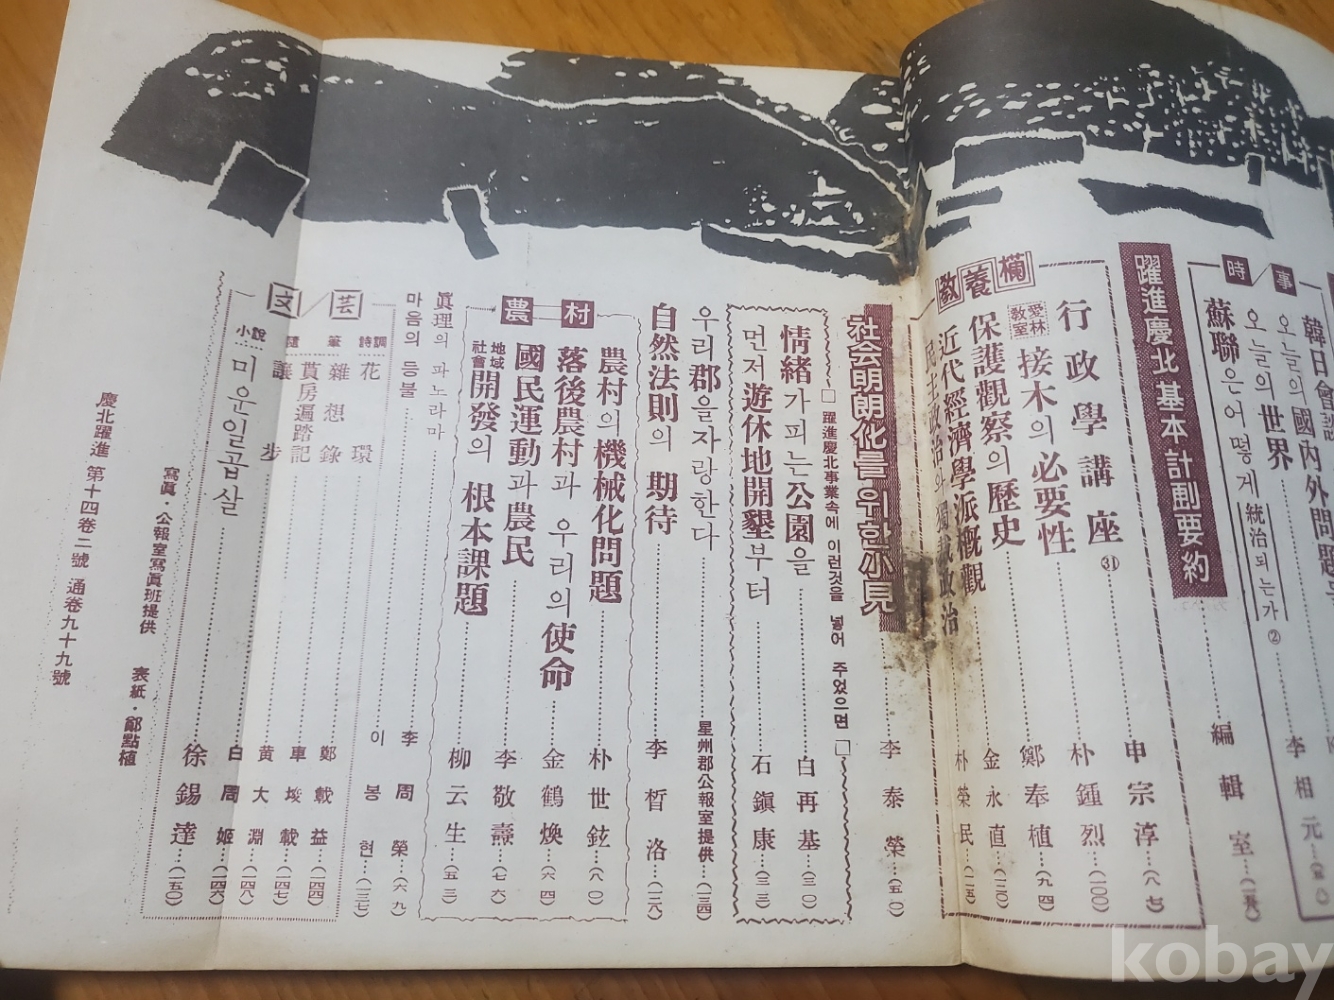 韓日會談
오늘의 國內外問題
時事
오늘의 世界
李相元
蘇聯은 어떻게 統治되는가 ②
編輯室
躍進慶北基本計劃要約
申宗淳…(八七)
行政學講座 ㉛
朴鍾烈…(一〇〇)
愛林敎室 接木의 必要性
鄭奉植…(九四)
保護觀察의 歷史
金永直…(一二〇)
近代經濟學派槪觀
朴榮民…(一一五)
民主政治와 獨裁政治
敎養欄
社会明朗化를위한小見
李泰榮…(五〇)
□ 躍進慶北事業속에 이런것을 넣어 주었으면 □
情緖가피는公園을
白再基…(三〇)
먼저遊休地開墾부터
石鎭康…(三三)
우리郡을자랑한다
星州郡公報室提供…(一三四)
自然法則의 期待
李晳洛…(一二八)
農村
農村의 機械化問題
朴世鉉…(八〇)
落後農村과 우리의 使命
金鶴煥…(六四)
國民運動과 農民
李敬壽…(七六)
地域社會開發의 根本課題
柳云生…(五三)
眞理의 파노라마
李周榮…(六九)
마음의 등불
이봉현…(一三七)
文芸
詩調 花環
鄭戴益…(一四四)
隨筆 雜想錄
車埈載…(一四七)
貰房遍踏記
黄大淵…(一四八)
讓步
白周姬…(一四六)
小說 미운일곱살
徐錫達…(一五〇)
寫眞・公報室寫眞班提供 表紙・鄒點植
慶北躍進 第十四卷二號 通卷九十九號
kobay